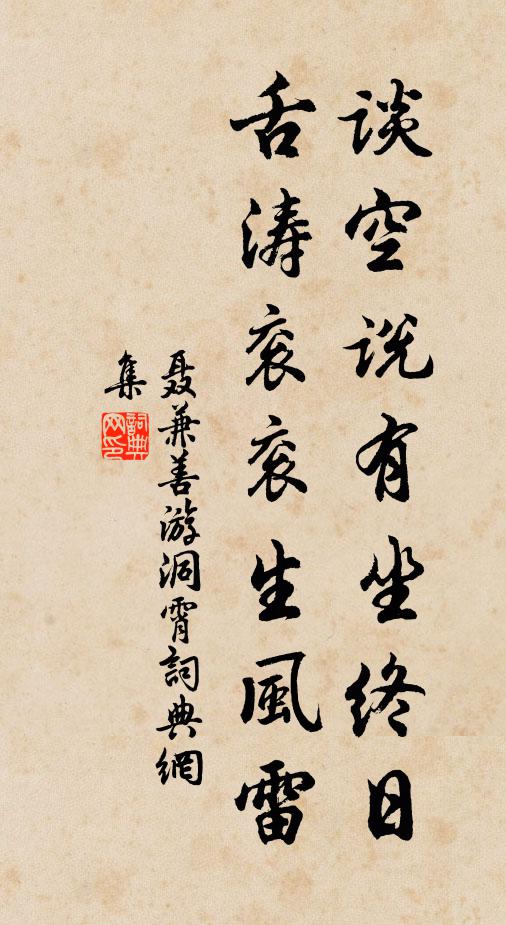 談空説有坐終日
舌涛衮衮生風雷
聂兼善游洞霄詞典網
集
詞典
网印